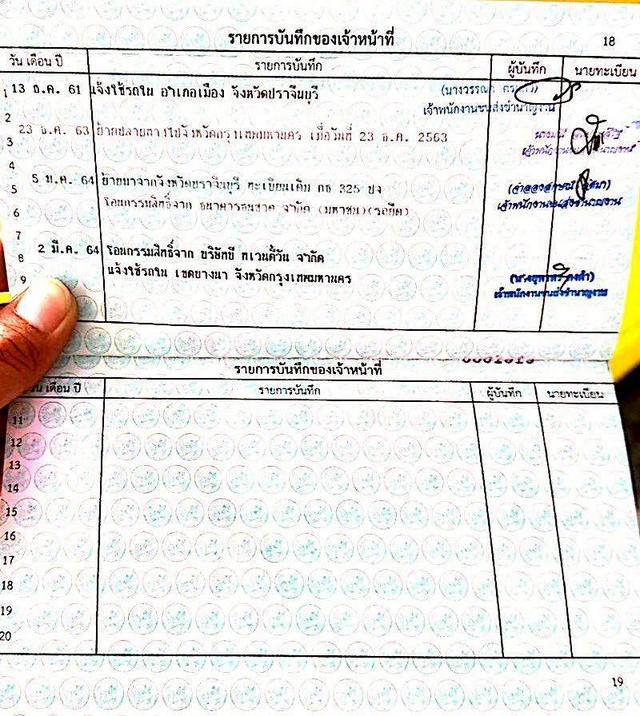 รายการบันทึกของเจ้าหน้าที่
18
วัน เดือน ปี รายการบันทึก ผู้บันทึก นายทะเบียน
1 13 ธ.ค. 61 แจ้งใช้รถใน อำเภอเมือง จังหวัดปราจีนบุรี
(นางวรรณา
เจ้าพนักงานขนส่งชำนาญงาน
2
23 ธ.ค. 63 ย้ายปลายทางไปจังหวัดกรุงเทพมหานคร เมื่อวันที่ 23 ธ.ค. 2563
3
4
5 ม.ค. 64 ย้ายมาจากจังหวัดปราจีนบุรี ทะเบียนเดิม กธ 325 ปจ
5
โอนกรรมสิทธิ์จาก ธนาคารธนชาต จำกัด (มหาชน)(รถยึด)
เจ้าพนักงานขนส่งชำนาญงาน
6
7
2 มี.ค. 64 โอนกรรมสิทธิ์จาก บริษัทบี ทเวนตี้วัน จำกัด
8
แจ้งใช้รถใน เขตบางนา จังหวัดกรุงเทพมหานคร
9
เจ้าพนักงานขนส่งชำนาญงาน
รายการบันทึกของเจ้าหน้าที่
วัน เดือน ปี รายการบันทึก ผู้บันทึก นายทะเบียน
11
12
13
14
15
16
17
18
19
20
19